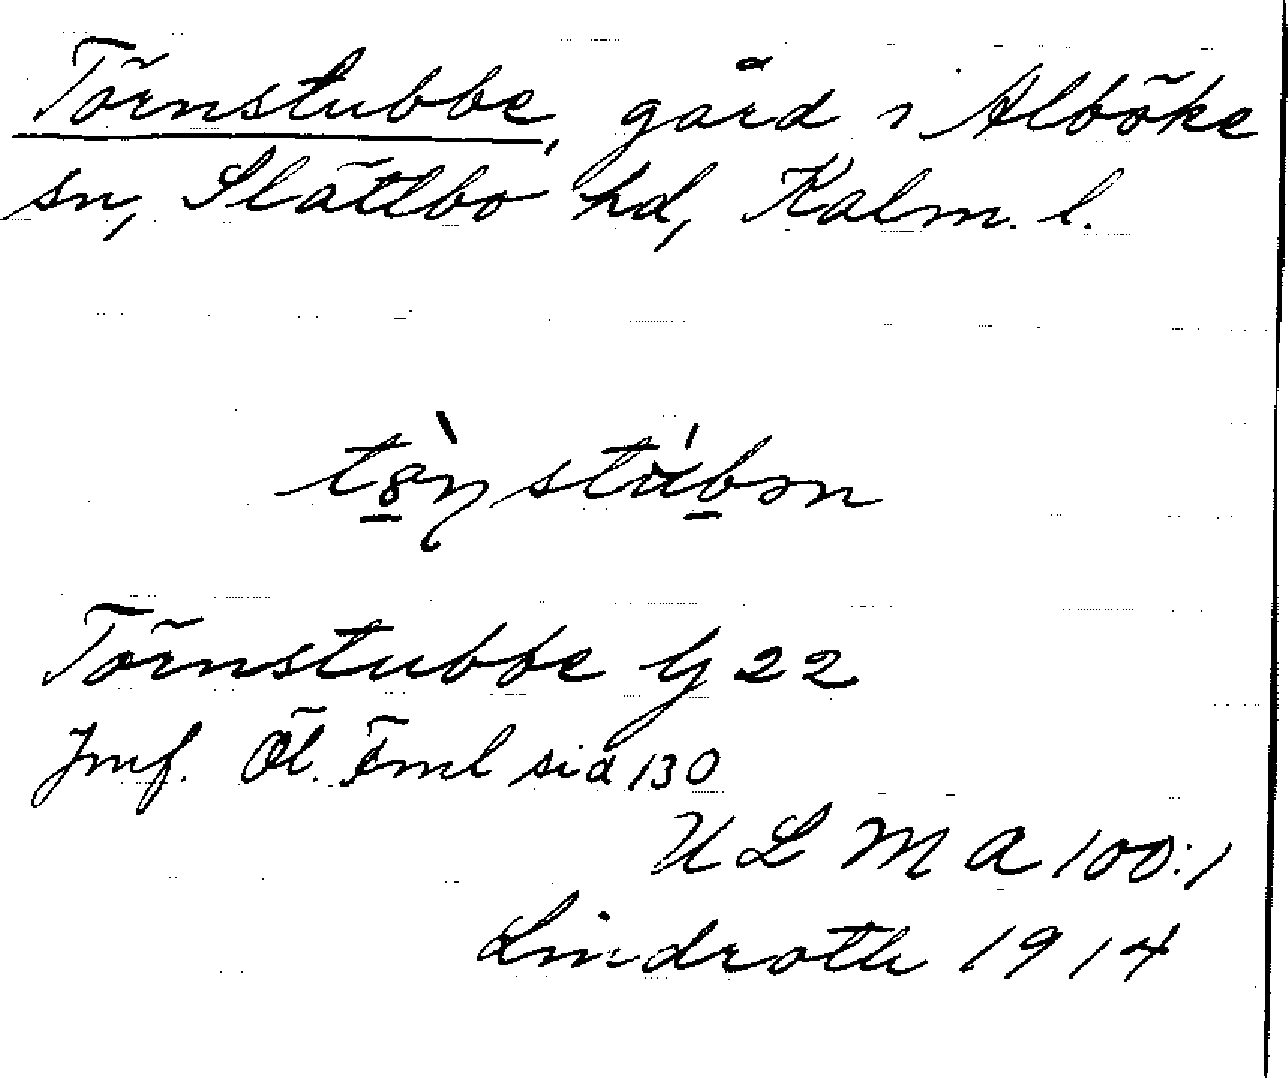 Törnstubbe, gård i Alböke
sn, Slättbo hd, Kalm. l.
Törnstubbe G 22
Jmf. Öl. Fml sid 130
ULMA 100:1
Lindroth 1914